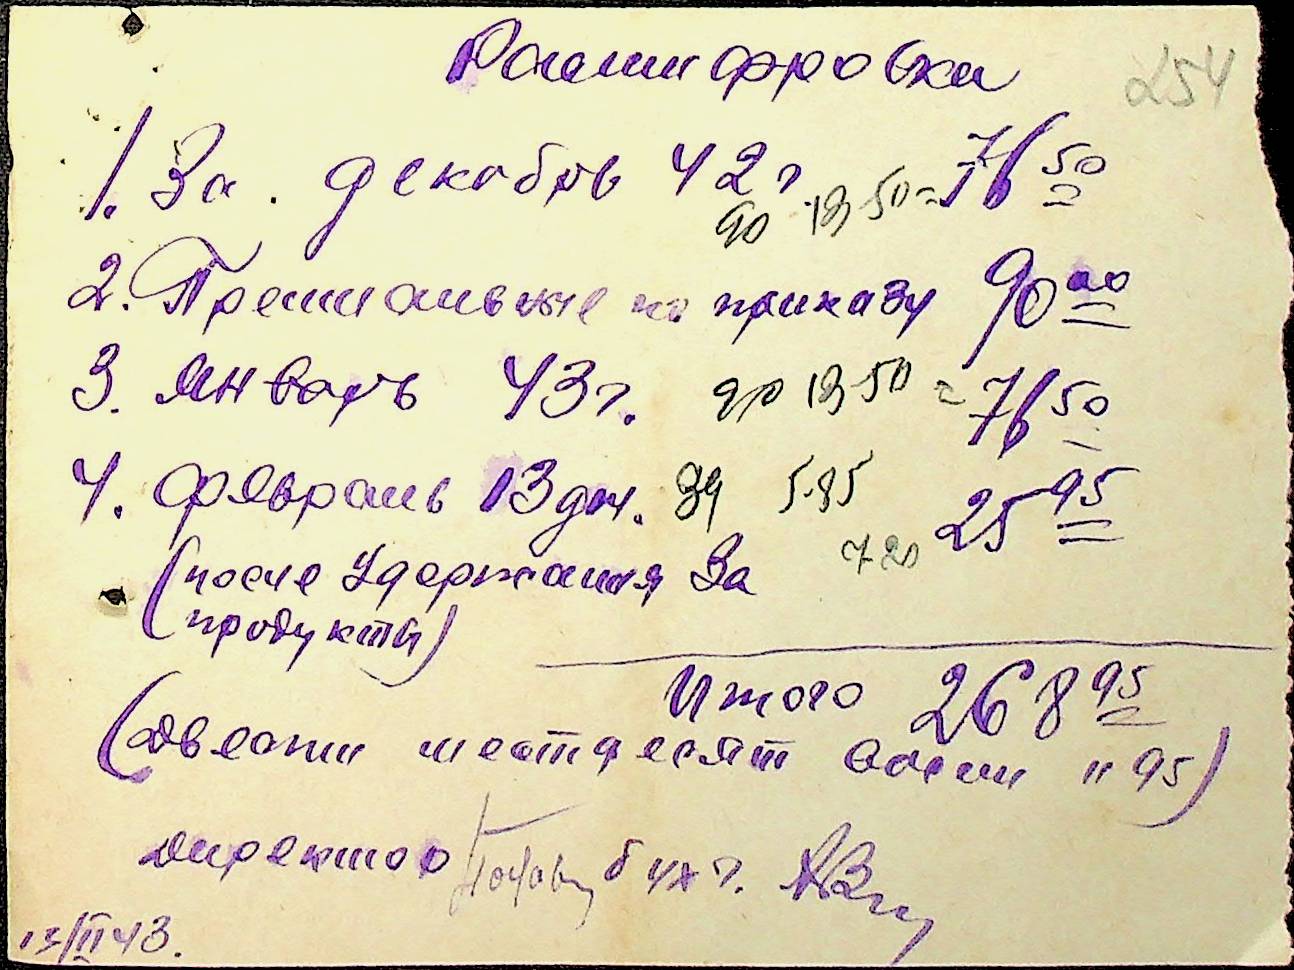 Расшифровка
254
1. За декабрь 42 г 90 13 50 = 76 50
2. Премиальные по приказу 90 00
3. Январь 43 г. 90 13 50 = 76 50
4. февраль 13 дн. 39 5.85 25 95
7 20
(после удержания за
продукты)
Итого 268 95
(двести шестдесят восем и 95)
директор бухг.
13/II 43.